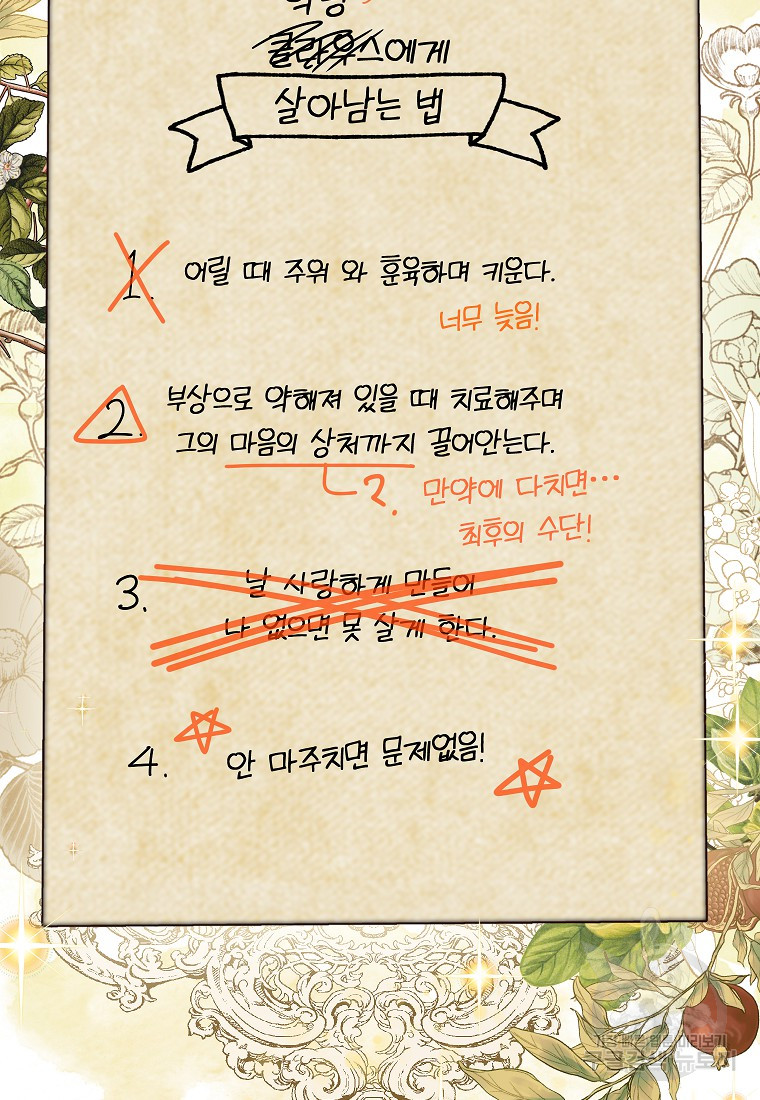 에게
살아남는 법
1. 어릴 때 주워 와 훈육하며 키운다.
너무 늦음!
2. 부상으로 약해져 있을 때 치료해주며
그의 마음의 상처까지 끌어안는다.
?. 만약에 다치면…
최후의 수단!
3. 날 사랑하게 만들어
나 없으면 못 살게 한다.
4. 안 마주치면 문제없음!